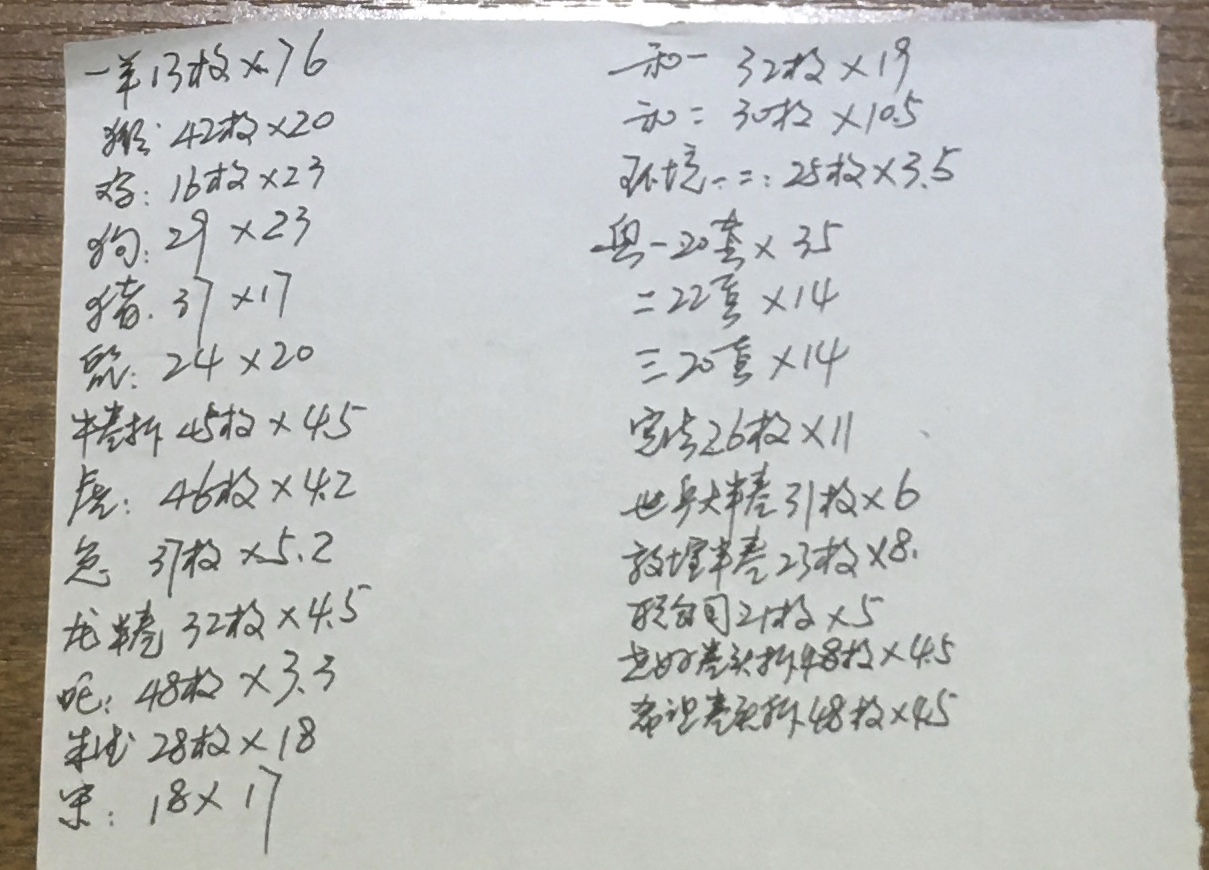 一羊13枚×76
猴:42枚×20
鸡:16枚×23
狗:29×23
猪.37×17
鼠:24×20
牛卷拆45枚×4.5
虎:46枚×4.2
兔 37枚×5.2
龙卷 32枚×4.5
蛇:48枚×3.3
朱德28枚×18
宋:18×17
和一 32枚×19
和二 30枚×10.5
环境一.二:25枚×3.5
奥一20套×35
二22套×14
三20套×14
宪法26枚×11
世乒大卷31枚×6
敦煌卷23枚×8.
21枚×5
卷头拆48枚×4.5
卷头拆48枚×4.5